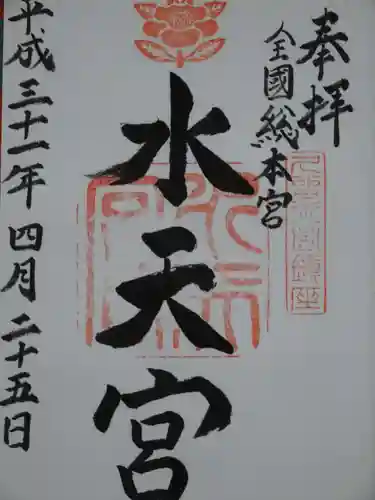 奉拝
全國総本宮
水天宮
平成三十一年四月二十五日